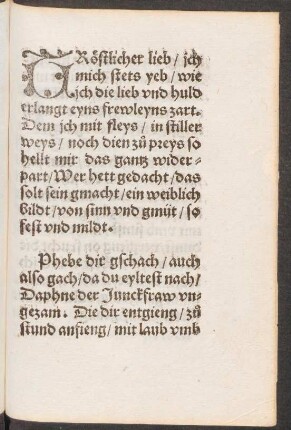 TRöstlicher lieb / jch
mich stets yeb / wie
jch die lieb vnd huld
erlangt eyns frewleyns zart.
Dem jch mit fleys / in stiller
weys / noch dien zů preys so
helt mir das gantz wider-
part / Wer hett gedacht / das
solt sein gmacht / ein weiblich
bildt / von sinn vnd gmüt / so
fest vnd mildt.
Phebe dir gschach / auch
also gach / da du eyltest nach /
Daphne der Junckfraw vn-
gezam. Die dir entgieng / zů
stund anfieng / mit laub vmb